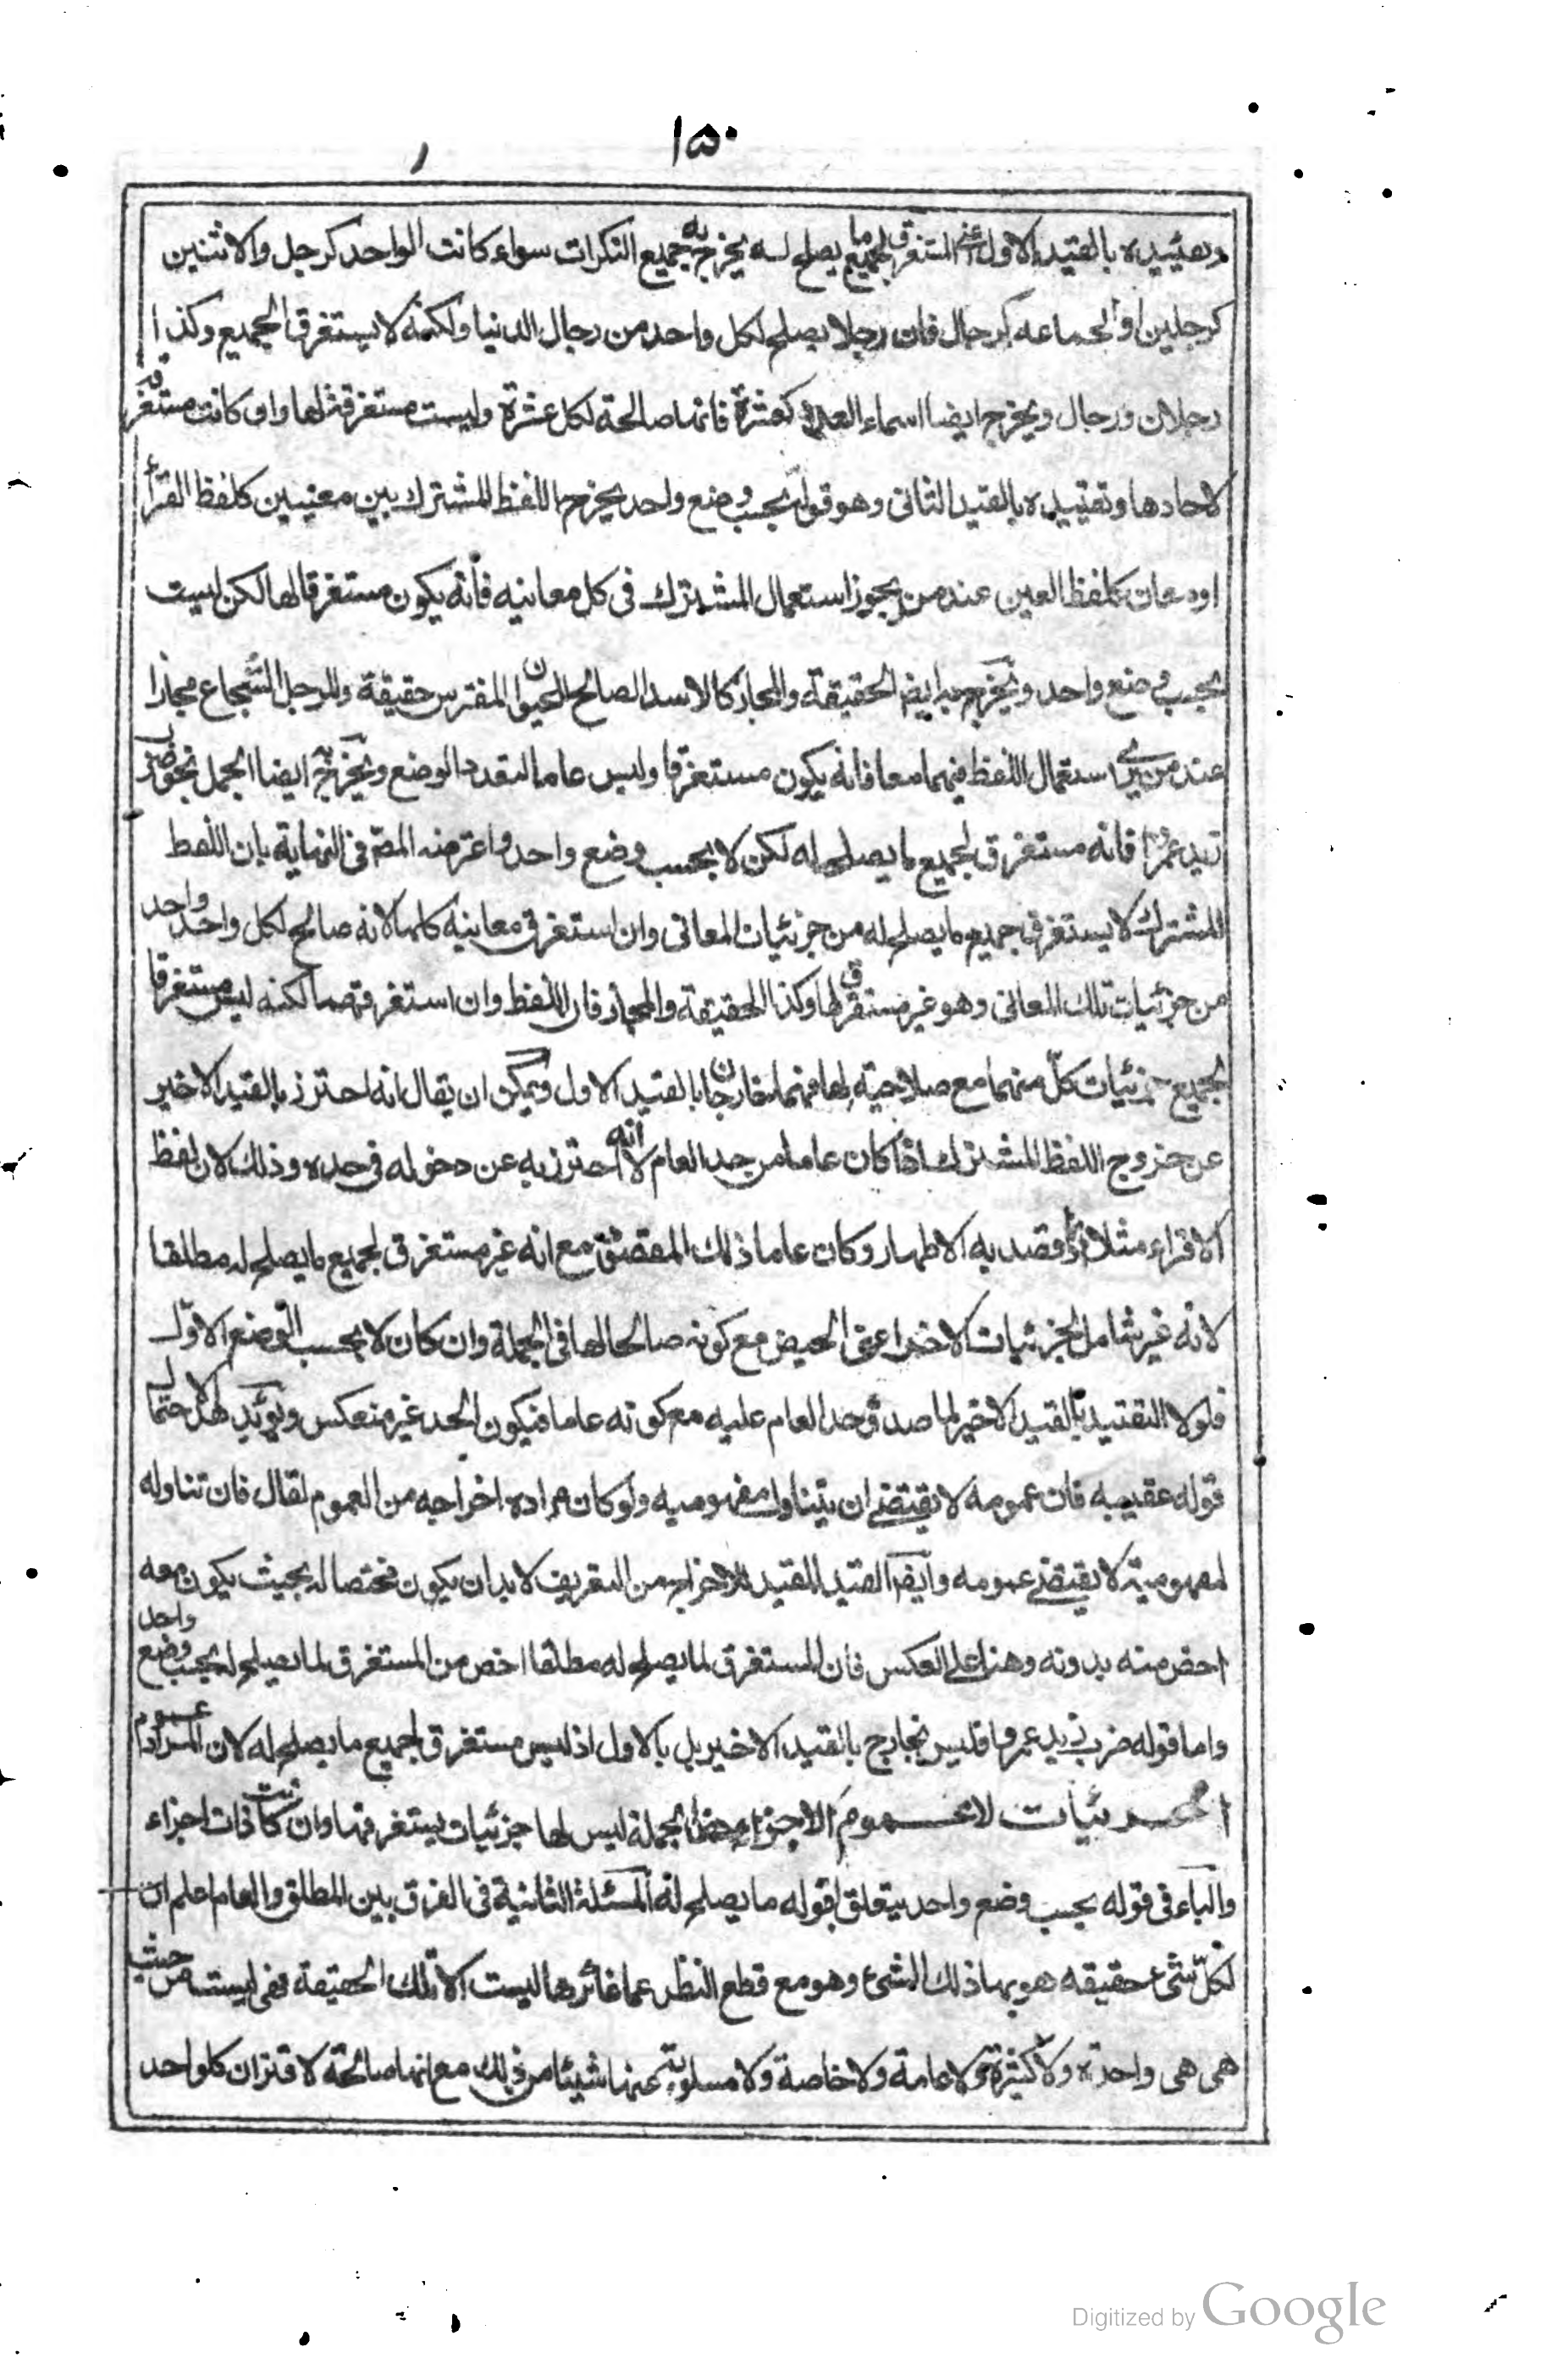 ١٥٠
وتقييده بالقيد الاول اعني المستغرق لجميع ما يصلح له يخرج به جميع النكرات سواء كانت الواحد كرجل والاثنين
كرجلين او الجماعه كرجال فان رجلا يصلح لكل واحد من رجال الدنيا ولكنه لا يستغرق الجميع وكذا
رجلان ورجال ويخرج ايضا اسماء العدد كعشرة فانها صالحة لكل عشرة وليست مستغرقة لها وان كانت مستغرقة
لاحادها وتقييده بالقيد الثاني وهو قوله بحسب وضع واحد يخرج اللفظ المشترك بين معنيين كلفظ القرأ
او معان كلفظ العين عند من يجوز استعمال المشترك في كل معانيه فانه يكون مستغرقا لها لكن ليست
بحسب وضع واحد ويخرج به ايضا الحقيقة والمجاز كالاسد الصالح للحيوان المفترس حقيقة والرجل الشجاع مجازا
عند من يرى استعمال اللفظ فيهما معا فانه يكون مستغرقا وليس عاما لتعدد الوضع ويخرج به ايضا الجمل نحو ضرب
زيد عمرا فانه مستغرق لجميع ما يصلح له لكن لا بحسب وضع واحد واعترضه المصّ في النهاية بان اللفظ
المشترك لا يستغرق جميع ما يصلح له من جزئيات المعاني وان استغرق معانيه كلها لانه صالح لكل واحد واحد
من جزئيات تلك المعاني وهو غير مستغرق لها وكذا الحقيقة والمجاز فان اللفظ وان استغرقهما لكنه ليس مستغرقا
لجميع جزئيات كلّ منهما مع صلاحيته لها فهما خارجان بالقيد الاول ويمكن ان يقال انه احترز بالقيد الاخير
عن خروج اللفظ المشترك اذا كان عاما من حد العام لا انه احترز به عن دخوله في حده وذلك لان لفظ
الاقراء مثلا اذا قصد به الاطهار وكان عاما ذلك المقصود مع انه غير مستغرق لجميع ما يصلح له مطلقا
لانه غير شامل لجزئيات الاخر اعني الحيض مع كونه صالحا لها في الجملة وان كان لا بحسب الوضع الاوّل
فلولا التقييد بالقيد الاخير لما صدق حد العام عليه مع كونه عاما فيكون الحد غير منعكس ويؤيد هذا الاحتمال
قوله عقيبه فان عمومه لا يقتضي ان يتناول مفهوميه ولو كان مراده اخراجه من العموم لقال فان تناوله
لمفهوميه لا يقتضي عمومه وايضا القيد المقيد للاخراج من التعريف لا بد ان يكون مختصا له بحيث يكون معه
اخص منه بدونه وهنا على العكس فان المستغرق لما يصلح له مطلقا اخص من المستغرق لما يصلح له بحسب وضع واحد
واما قوله ضرب زيد عمروا فليس بخارج بالقيد الاخير بل بالاول اذ ليس مستغرق لجميع ما يصلح له لان المراد عموم
الجزئيات لا عموم الاجزاء وهذه الجملة ليس لها جزئيات يستغرقها وان كانت ذات اجزاء
والباء في قوله بحسب وضع واحد يتعلق بقوله ما يصلح له المسئلة الثانية في الفرق بين المطلق والعام اعلم ان
لكلّ شيء حقيقه هو بها ذلك الشيء وهو مع قطع النظر عما غائرها ليست الا تلك الحقيقة فهي ليست من حيث
هي هي واحدة ولا كثيرة ولا عامة ولا خاصة ولا مسلوبة عنها شيئا من ذلك مع انها صالحة لاقتران كلواحد
Digitized by Google